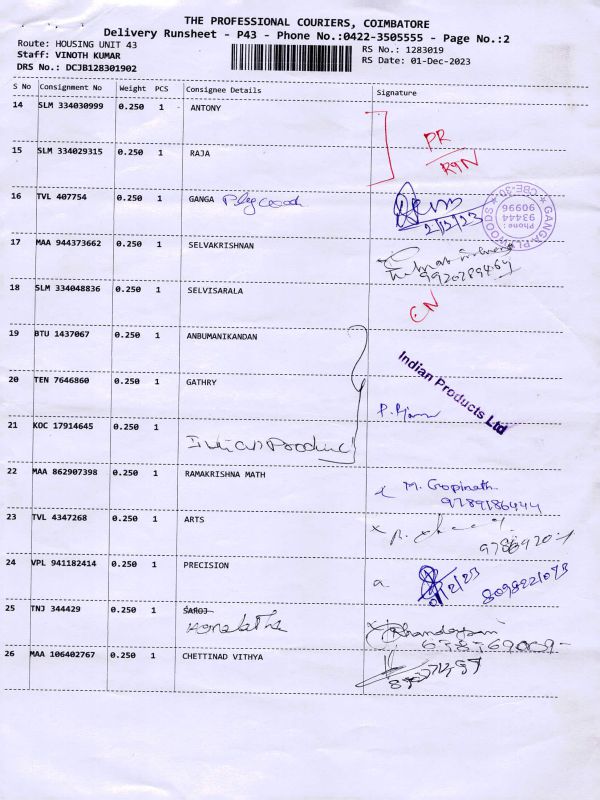 THE PROFESSIONAL COURIERS, COIMBATORE
Delivery Runsheet - P43 - Phone No.:0422-3505555 - Page No.:2
Route: HOUSING UNIT 43
Staff: VINOTH KUMAR
DRS No.: DCJB128301902
RS No.: 1283019
RS Date: 01-Dec-2023
S No Consignment No Weight PCS Consignee Details Signature
14 SLM 334030999 0.250 1 ANTONY
PR
15 SLM 334029315 0.250 1 RAJA
RTN
16 TVL 407754 0.250 1 GANGA Plywood
2/12/23
GANGA PLYWOODS
Phone:
93444
90996
CBE-30
17 MAA 944373662 0.250 1 SELVAKRISHNAN
18 SLM 334048836 0.250 1 SELVISARALA
CN
19 BTU 1437067 0.250 1 ANBUMANIKANDAN
Indian Products Ltd
20 TEN 7646860 0.250 1 GATHRY
21 KOC 17914645 0.250 1
Indian Product
22 MAA 862907398 0.250 1 RAMAKRISHNA MATH
M. Gopinath
9789186444
23 TVL 4347268 0.250 1 ARTS
24 VPL 941182414 0.250 1 PRECISION
8098221073
25 TNJ 344429 0.250 1 SAROJ
26 MAA 106402767 0.250 1 CHETTINAD VITHYA